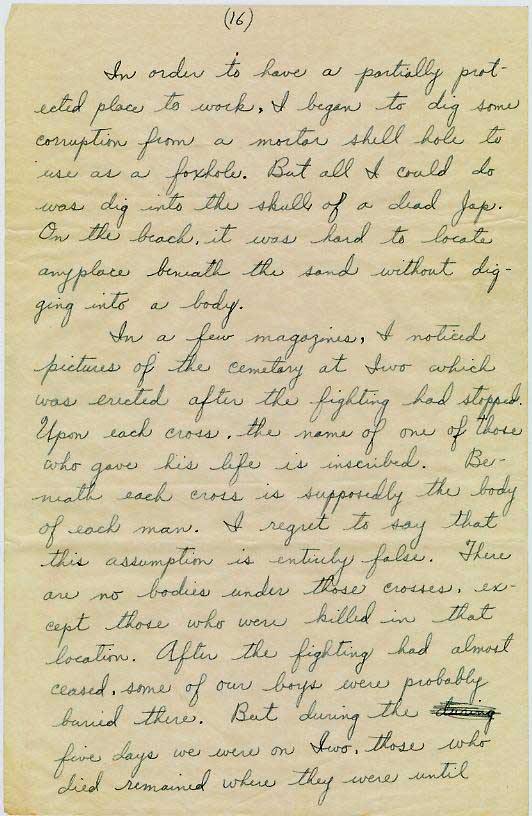 (16)
In order to have a partially prot-
ected place to work, I began to dig some
corruption from a mortar shell hole to
use as a foxhole. But all I could do
was dig into the skull of a dead Jap.
On the beach, it was hard to locate
anyplace beneath the sand without dig-
ging into a body.
In a few magazines, I noticed
pictures of the cemetary at Iwo which
was erected after the fighting had stopped.
Upon each cross, the name of one of those
who gave his life is inscribed. Be-
neath each cross is supposedly the body
of each man. I regret to say that
this assumption is entirely false. There
are no bodies under those crosses, ex-
cept those who were killed in that
location. After the fighting had almost
ceased, some of our boys were probably
buried there. But during the
five days we were on Iwo, those who
died remained where they were until